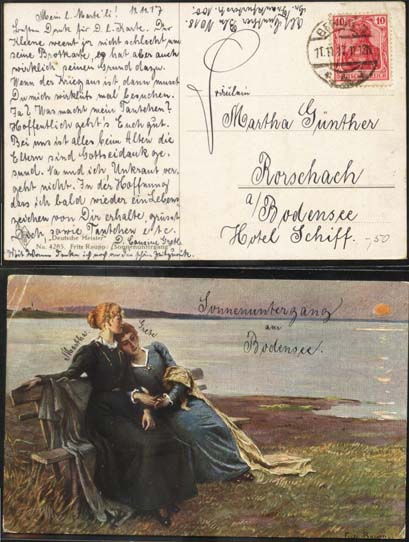 Mein l. Marteli! 11.11.17
Besten Dank für D. l. Karte. Der
Kleene weent jor nicht schlecht um
seine Brotkarte, es hat aber auch
wirklich seinen Grund darzu.
Wenn der Krieg aus ist dann musst
Du mich wirklich mal besuchen.
Ja? Was macht mein Tantchen?
Hoffentlich geht's Euch gut.
Bei uns ist alles beim Alten die
Eltern sind Gottseidank ge-
sund. Na und ich, Unkraut ver-
geht nicht. In der Hoffnung
dass ich bald wieder ein Lebens
zeichen von Dir erhalte, grüsst
Dich sowie Tantchen etc.
D. Cousine Grete
"Deutsche Meister"
No. 4265. Fritz Raupp: Sonnenuntergang
Abs. Günther Bln NO 18.
Gr. Frankfurterstr. 101.
10 10
11.11.17
Fräulein
Martha Günther
Rorschach
a/ Bodensee
Hotel Schiff.
-50
Sonnenuntergang
am
Bodensee.
Martha Grese